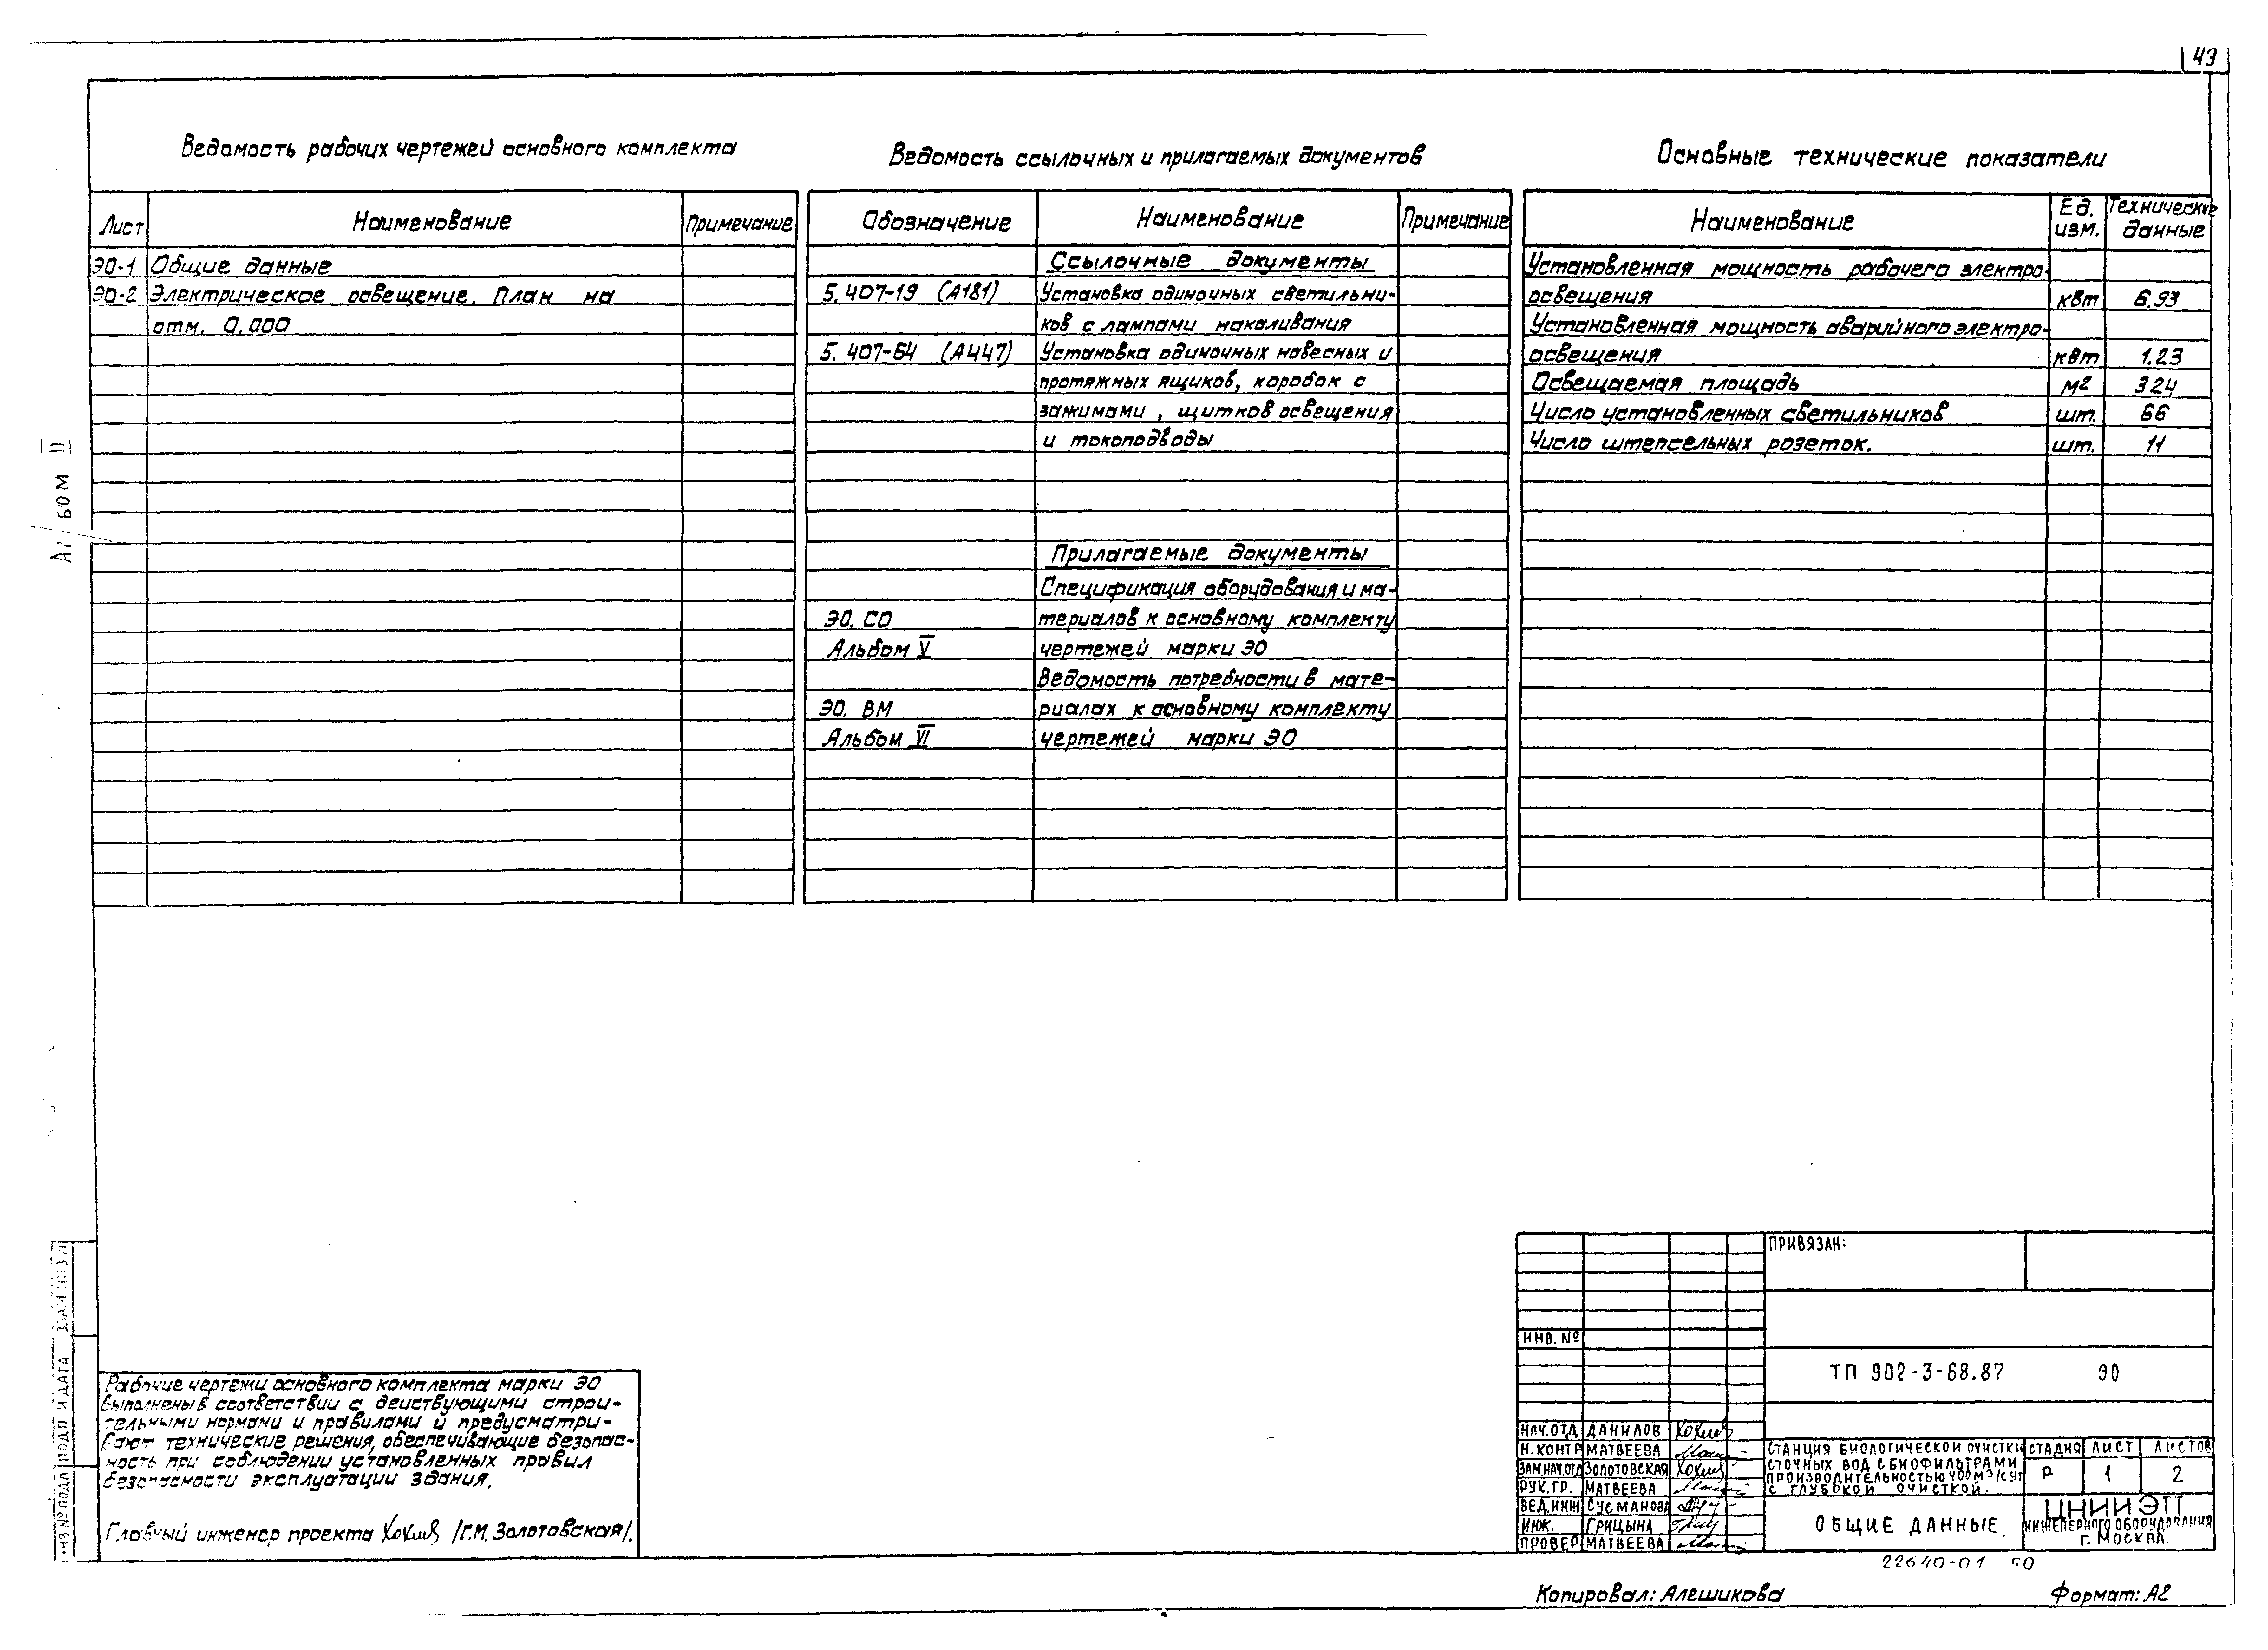 49
Ведомость рабочих чертежей основного комплекта
Лист Наименование Примечание
ЭО-1 Общие данные
ЭО-2 Электрическое освещение. План на
отм. 0.000
Ведомость ссылочных и прилагаемых документов
Обозначение Наименование Примечание
Ссылочные документы
5.407-19 (А181) Установка одиночных светильни-
ков с лампами накаливания
5.407-64 (А447) Установка одиночных навесных и
протяжных ящиков, коробок с
зажимами, щитков освещения
и токоподводы
Прилагаемые документы
Спецификация оборудования и ма-
ЭО. СО териалов к основному комплекту
Альбом V чертежей марки ЭО
Ведомость потребности в мате-
ЭО. ВМ риалах к основному комплекту
Альбом VI чертежей марки ЭО
Основные технические показатели
Наименование Ед. изм. Технические данные
Установленная мощность рабочего электро-
освещения квт 6.93
Установленная мощность аварийного электро-
освещения квт 1.23
Освещаемая площадь м2 324
Число установленных светильников шт. 66
Число штепсельных розеток. шт. 11
Альбом II
ИНВ № ПОДЛ ПОДП. И ДАТА
Рабочие чертежи основного комплекта марки ЭО
выполнены в соответствии с действующими строи-
тельными нормами и правилами и предусматри-
вают технические решения, обеспечивающие безопас-
ность при соблюдении установленных правил
безопасности эксплуатации здания.
Главный инженер проекта /Г.М. Золотовская/.
ПРИВЯЗАН:
ИНВ. №
ТП 902-3-68.87 ЭО
НАЧ.ОТД ДАНИЛОВ
Н.КОНТР МАТВЕЕВА
ЗАМ НАЧ.ОТД ЗОЛОТОВСКАЯ
РУК.ГР. МАТВЕЕВА
ВЕД.ИНЖ СУСМАНОВА
ИНЖ. ГРИЦЫНА
ПРОВЕР МАТВЕЕВА
СТАНЦИЯ БИОЛОГИЧЕСКОЙ ОЧИСТКИ
СТОЧНЫХ ВОД С БИОФИЛЬТРАМИ
ПРОИЗВОДИТЕЛЬНОСТЬЮ 400 М3/СУТ
С ГЛУБОКОЙ ОЧИСТКОЙ.
СТАДИЯ ЛИСТ ЛИСТОВ
Р 1 2
ОБЩИЕ ДАННЫЕ.
ЦНИИЭП
ИНЖЕНЕРНОГО ОБОРУДОВАНИЯ
Г. МОСКВА.
22640-01 50
Копировал: Алешикова Формат: А2